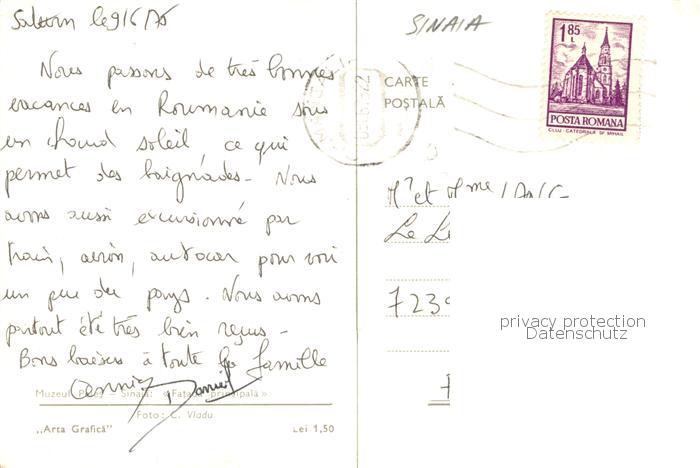 SINAIA
1,85 L
POSTA ROMANA
CLUJ - CATEDRALA SF. MIHAIL
CARTE
POȘTALĂ
Nous passons de très bonnes
vacances en Roumanie sous
un chaud soleil, ce qui
permet des baignades - Nous
avons aussi excursionné par
train, avion, autocar pour voir
un peu du pays. Nous avons
partout été très bien reçus -
Bons baisers à toute la famille
Annie Daniel
Mr et Mme
Le
723
privacy protection
Datenschutz
Muzeul Peleș - Sinaia: «Fațada principală»
Foto: C. Vladu
„Arta Grafică" Lei 1,50